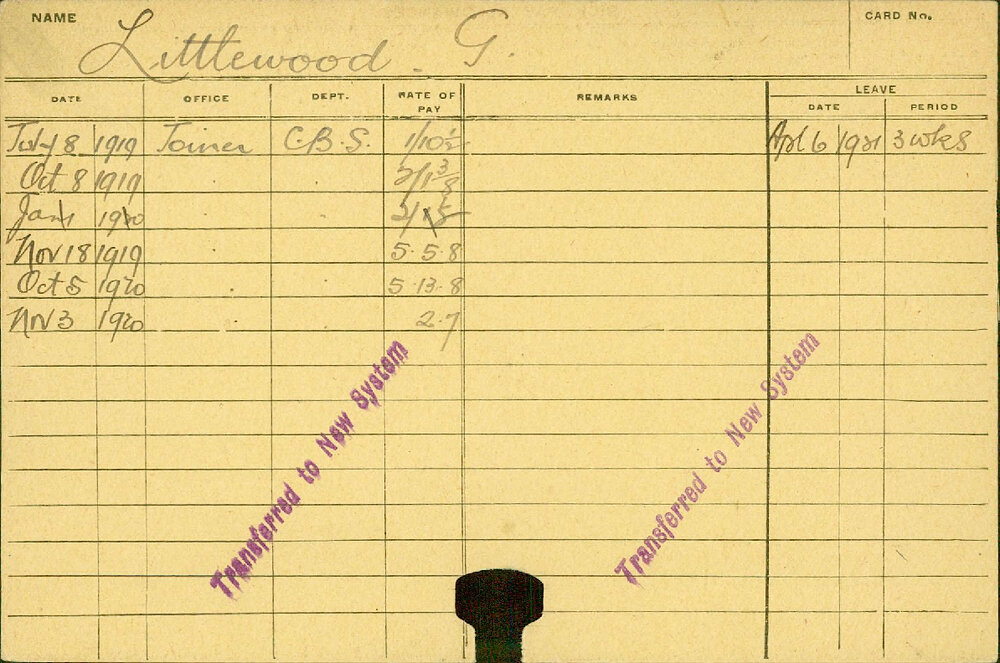 NAME Littlewood. G. CARD No.
DATE OFFICE DEPT. RATE OF PAY REMARKS LEAVE
DATE PERIOD
July 8 1919 Joiner C.B.S. 1/10½ Apl 6 1921 3 wks
Oct 8 1919 2/1⅜
Jan 1 1920
Nov 18 1919 5.5.8
Oct 5 1920 5.13.8
Nov 3 1920 2.7
Transferred to New System
Transferred to New System